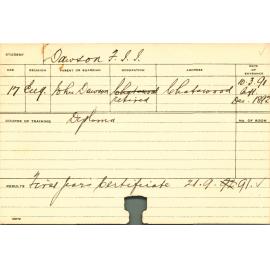 STUDENT Dawson F. S. S.
AGE RELIGION PARENT OR GUARDIAN OCCUPATION ADDRESS DATE OF ENTRANCE
17 John Dawson retired Chatswood 10.3.91
Dec. 1892
COURSE OF TRAINING Diploma NO. OF ROOM
RESULTS First Year's Certificate 21.9.91 ✓
NOTE